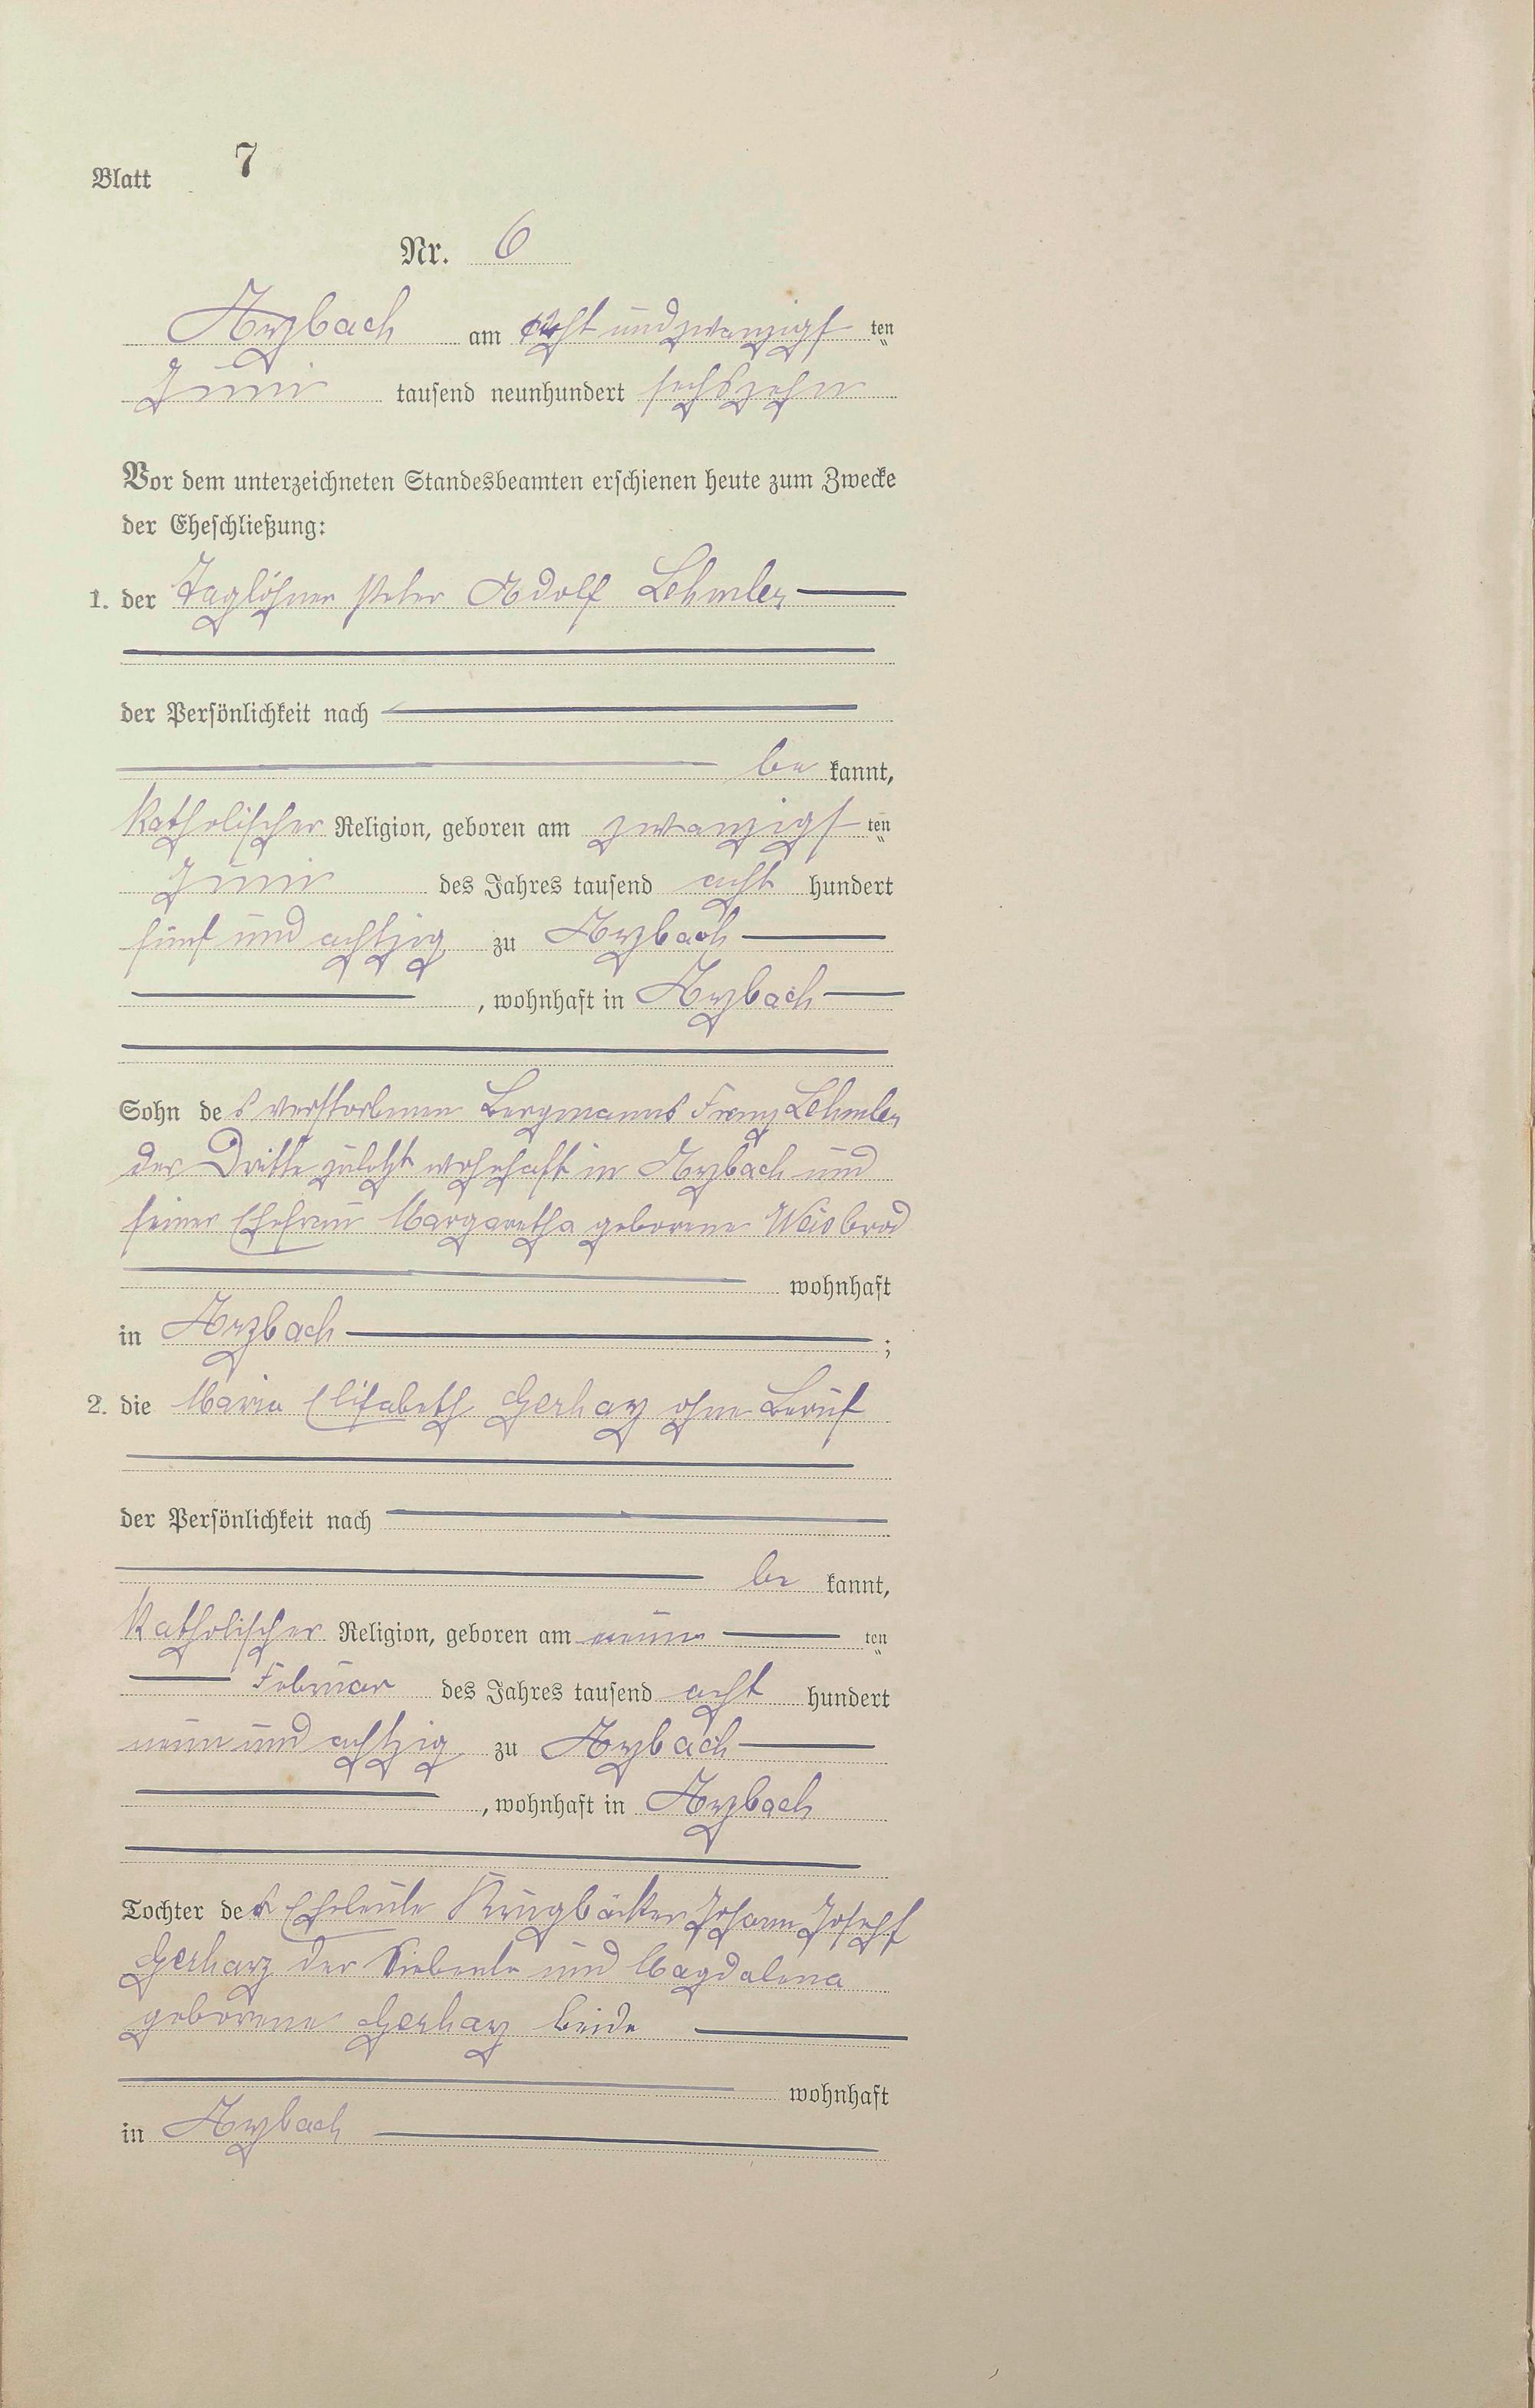 Blatt 7
Nr. 6
Arzbach am acht und zwanzigs ten
Juni tausend neunhundert sechszehn
Vor dem unterzeichneten Standesbeamten erschienen heute zum Zwecke
der Eheschließung:
1. der Taglöhner Peter Adolf Lehmler
der Persönlichkeit nach
be kannt,
katholischer Religion, geboren am zwanzigs ten
Juni des Jahres tausend acht hundert
fünf und achtzig zu Arzbach
, wohnhaft in Arzbach
Sohn des verstorbenen Bergmanns Franz Lehmler
der Dritte zuletzt wohnhaft in Arzbach und
seiner Ehefrau Margaretha geborene Weisbrod
wohnhaft
in Arzbach ;
2. die Maria Elisabeth Gerharz ohne Beruf
der Persönlichkeit nach
be kannt,
katholischer Religion, geboren am neun ten
Februar des Jahres tausend acht hundert
neun und achtzig zu Arzbach
, wohnhaft in Arzbach
Tochter der Eheleute Krugbäcker Johann Joseph
Gerharz der Siebente und Magdalena
geborene Gerharz beide
wohnhaft
in Arzbach